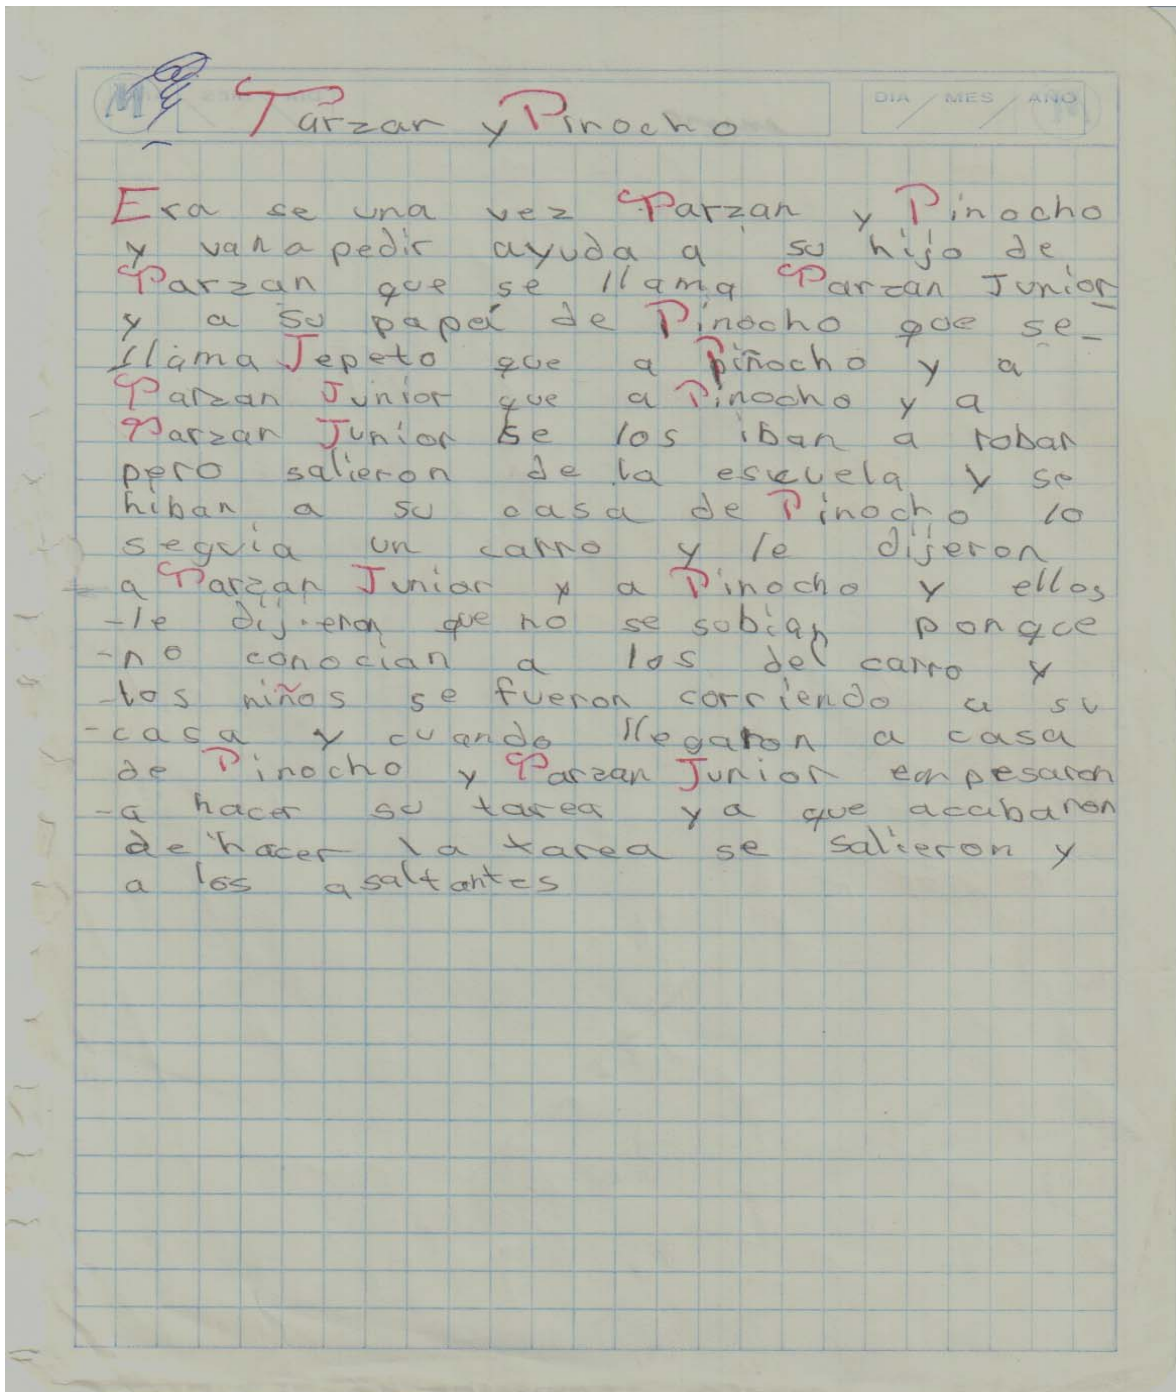 Tarzan y Pinocho
DIA / MES / AÑO
Era se una vez Tarzan y Pinocho
y van a pedir ayuda a su hijo de
Tarzan que se llama Tarzan Junior
y a su papá de Pinocho que se-
llama Jepeto que a Pinocho y a
Tarzan Junior que a Pinocho y a
Tarzan Junior se los iban a robar
pero salieron de la escuela y se
hiban a su casa de Pinocho lo
seguia un carro y le dijeron
a Tarzan Junior y a Pinocho y ellos
-le dijeron que no se subian ponque
-no conocian a los del carro y
-los niños se fueron corriendo a su
-casa y cuando llegaron a casa
de Pinocho y Tarzan Junior enpesaron
-a hacer su tarea ya que acabaron
de hacer la tarea se salieron y
a los asaltantes